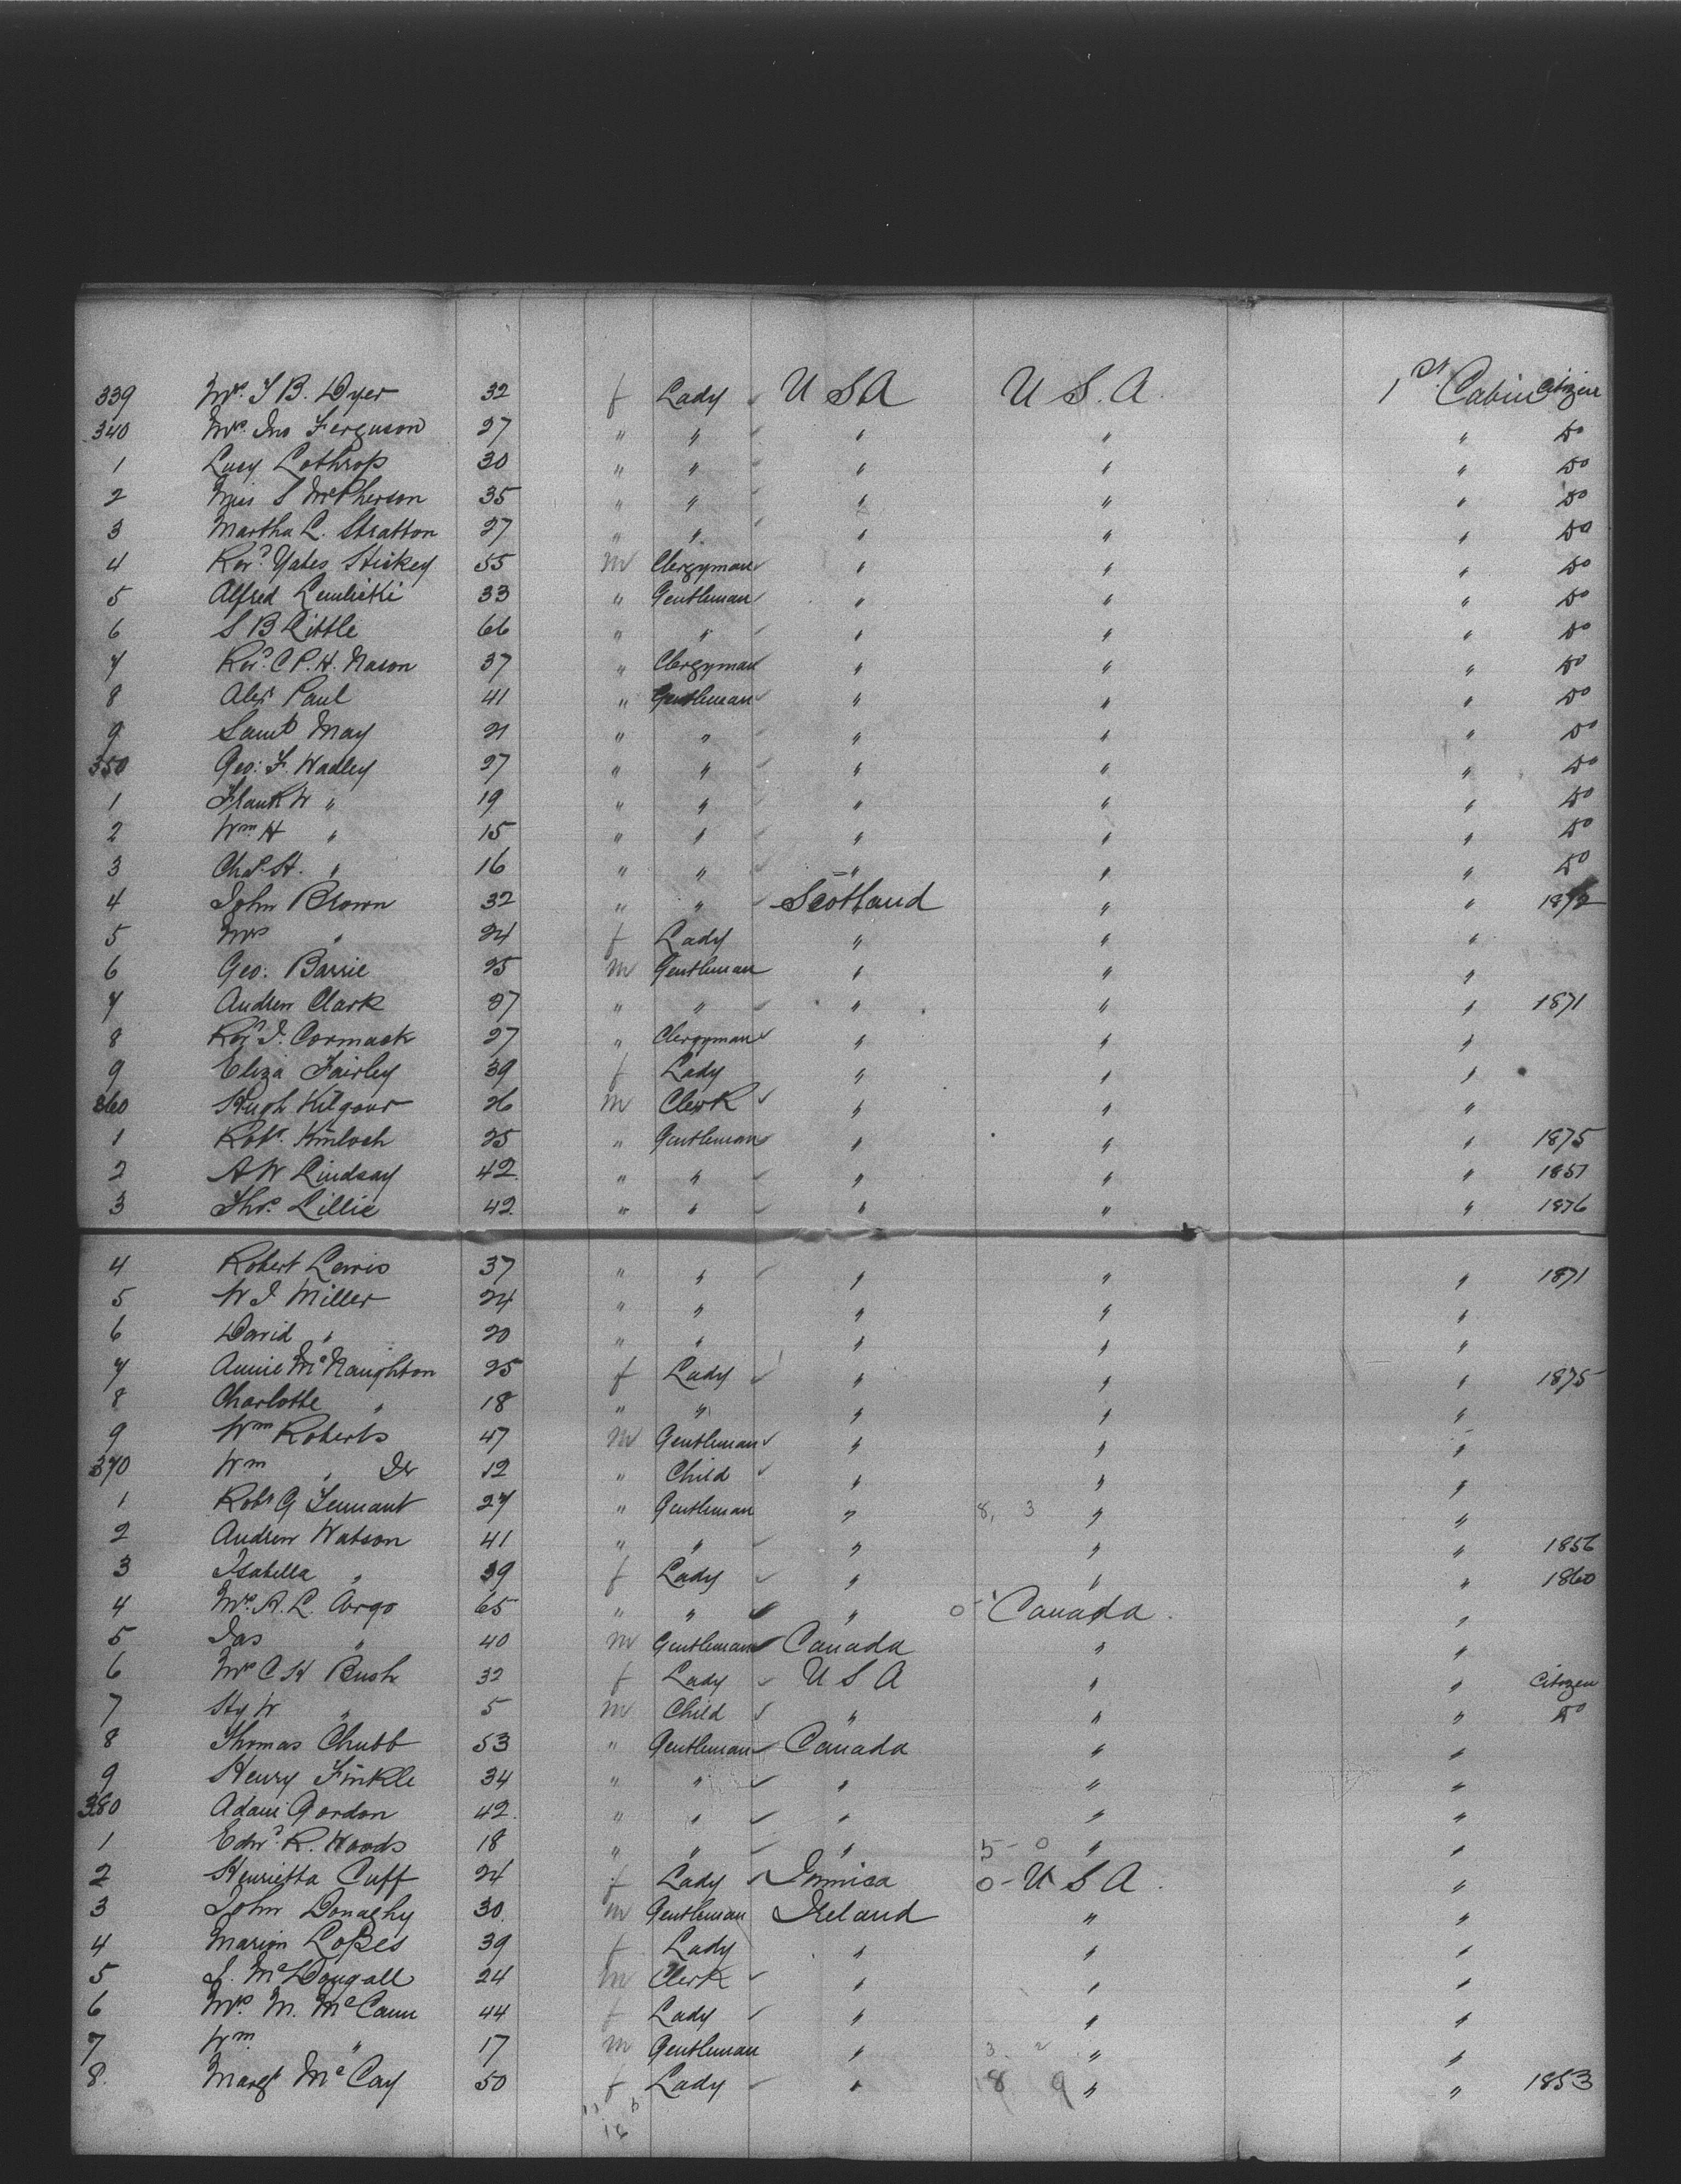 339 Mrs. T B. Dyer 32 f Lady U S A U S. A. 1st Cabin Citizen
340 Mrs. Jno Ferguson 27 " " " " " Do
1 Lucy Lothrop 30 " " " " " Do
2 Miss S McPherson 35 " " " " " Do
3 Martha L. Stratton 27 " " " " " Do
4 Revd. Yates Hickey 55 m Clergyman " " " Do
5 Alfred 33 " Gentleman " " " Do
6 S B Little 66 " " " " " Do
7 Revd. C P. H. Nason 37 " Clergyman " " " Do
8 Alexr Paul 41 " Gentleman " " " Do
9 Saml May 21 " " " " " Do
350 Geo: F. Wadley 27 " " " " " Do
1 Frank W " 19 " " " " " Do
2 Wm H " 15 " " " " " Do
3 Chas. H. " 16 " " " " " Do
4 John Brown 32 " " Scotland " " 1872
5 Mrs " 24 f Lady " " "
6 Geo: Barrie 25 m Gentleman " " "
7 Andrew Clark 37 " " " " " 1871
8 Revd J. Cormack 27 " Clergyman " " "
9 Eliza Fairley 39 f Lady " " "
360 Hugh Kilgour 26 m Clerk " " "
1 Robt. Kinloch 25 " Gentleman " " " 1875
2 A W Lindsay 42 " " " " " 1857
3 Thos. Lillie 42 " " " " " 1876
4 Robert Lewis 37 " " " " " 1871
5 W J Miller 24 " " " " "
6 David " 20 " " " " "
7 Annie McNaughton 25 f Lady " " " 1875
8 Charlotte " 18 " " " " "
9 Wm Roberts 47 m Gentleman " " "
370 Wm " Jr 12 " Child " " "
1 Robt G Tennant 27 " Gentleman " 8, 3 " "
2 Andrew Watson 41 " " " " " 1856
3 Isabella " 39 f Lady " " " 1860
4 Mrs. A. L. Argo 65 " " " 0 Canada. "
5 Jas " 40 m Gentleman Canada " "
6 Mrs C H Bush 32 f Lady U S A " " Citizen
7 Hy W " 5 m Child " " " Do
8 Thomas Chubb 53 " Gentleman Canada " "
9 Henry Finkle 34 " " " " "
380 Adam Gordon 42 " " " " "
1 Edwd. R. Woods 18 " " " 5 - 0 " "
2 Henrietta Cuff 24 f Lady 0 - U S A. "
3 John Donaghy 30 m Gentleman Ireland " "
4 Marion Lopes 39 f Lady " " "
5 J. McDougall 24 m Clerk " " "
6 Mrs. M. McCann 44 f Lady " " "
7 Wm " 17 m Gentleman " 3 2 " "
8. Margt McCay 50 f Lady " 18 9 " " 1853
16